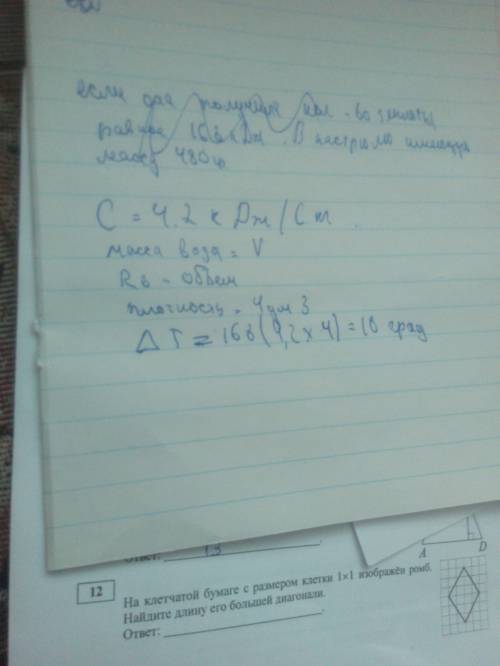 если она получила кол-во теплоты
равное 168 кДж. В кастрюлю имеющую
массу 480 ю
C = 4.2 к Дж / С m
масса вода = V
Rв = объем
плотность = 4 дм 3
Δ T = 168 (4,2 x 4) = 10 град
Ответ: 13
A D
12
На клетчатой бумаге с размером клетки 1×1 изображён ромб.
Найдите длину его большей диагонали.
Ответ: